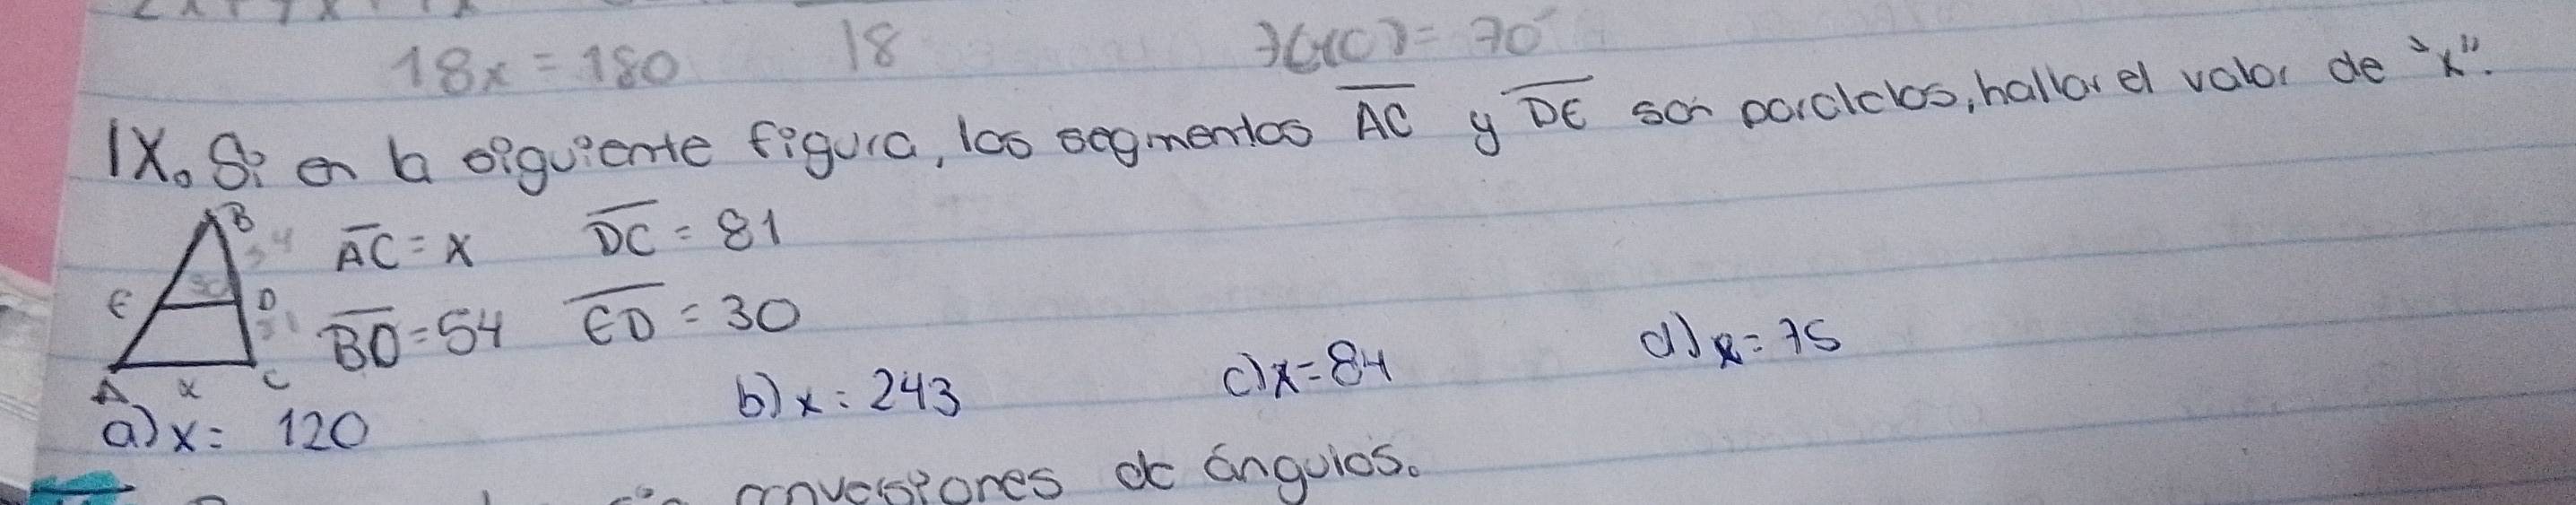 18x = 180
18
IX. Si en la siguiente figura, los segmentos AC y DE son paralelos, hallar el valor de "x".
B
AC = x DC = 81
E D
BD = 54 ED = 30
A x C
a) x = 120 b) x = 243 c) x = 84 d) x = 75
conversiones de ángulos.